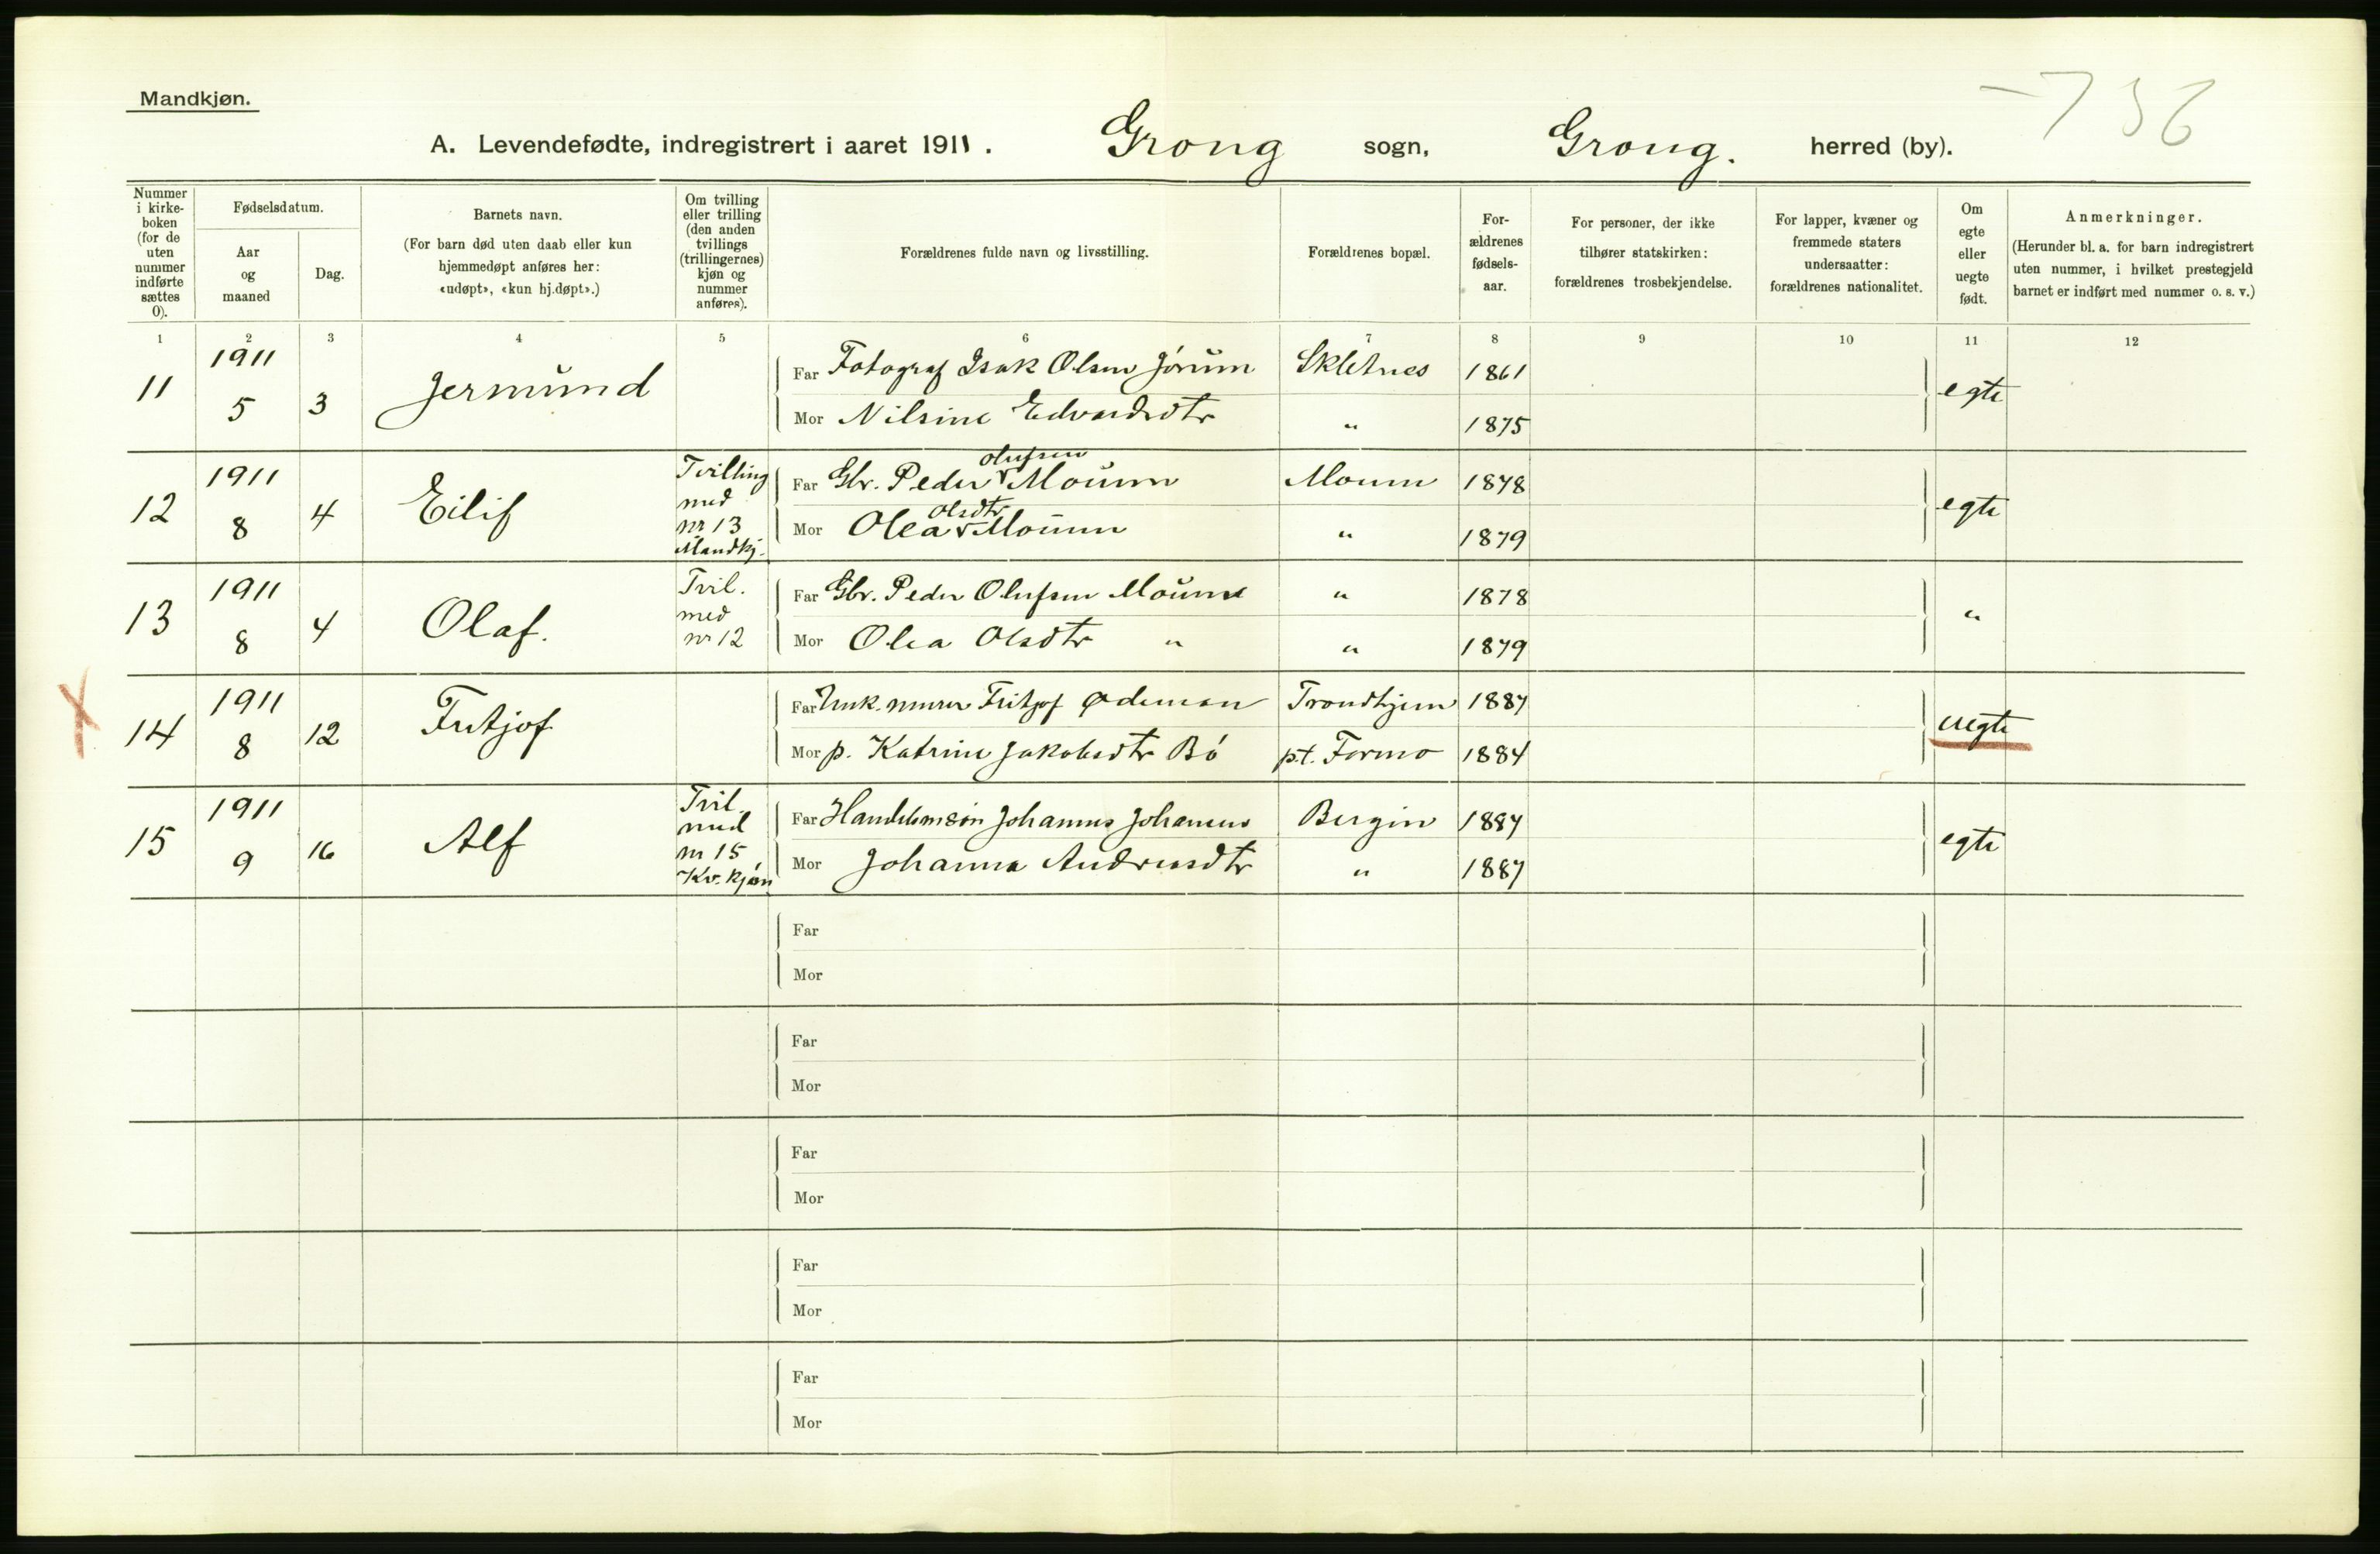 Mandkjøn.
736
A. Levendefødte, indregistrert i aaret 1911. Grong sogn, Grong. herred (by).
Nummer i kirke-boken (for de uten nummer indførte sættes 0).
Fødselsdatum.
Aar og maaned
Dag.
Barnets navn.
(For barn død uten daab eller kun
hjemmedøpt anføres her:
«udøpt», «kun hj.døpt».)
Om tvilling
eller trilling
(den anden
tvillings
(trillingernes)
kjøn og
nummer
anføres).
Forældrenes fulde navn og livsstilling.
Forældrenes bopæl.
For-
ældrenes
fødsels-
aar.
For personer, der ikke
tilhører statskirken:
forældrenes trosbekjendelse.
For lapper, kvæner og
fremmede staters
undersaatter:
forældrenes nationalitet.
Om
egte
eller
uegte
født.
Anmerkninger.
(Herunder bl. a. for barn indregistrert
uten nummer, i hvilket prestegjeld
barnet er indført med nummer o. s. v.)
1 2 3 4 5 6 7 8 9 10 11 12
11 1911 5 3 Jermund
Far Fotograf Isak Olsen Jørum Skletnes 1861 egte
Mor Nilsine Edvardsdtr " 1875
12 1911 8 4 Eilif
Tvilling
med
nr 13
Mandkj.
Far Gbr. Peder Olufsen Moum Moum 1878 egte
Mor Olea Olsdtr Moum " 1879
13 1911 8 4 Olaf.
Tvil.
med
nr 12
Far Gbr. Peder Olufsen Moum " 1878 "
Mor Olea Olsdtr " " 1879
X
14 1911 8 12 Fritjof
Far Unk. murer Fritjof Ødeman Trondhjem 1887 uegte
Mor p. Katrine Jakobsdtr Bö p.t. Formo 1884
15 1911 9 16 Alf
Tvil.
med
nr 15
Kv. kjøn
Far HandelsmSøn Johannes Johansen Bergin 1887 egte
Mor Johanna Andreasdtr " 1887
Far
Mor
Far
Mor
Far
Mor
Far
Mor
Far
Mor